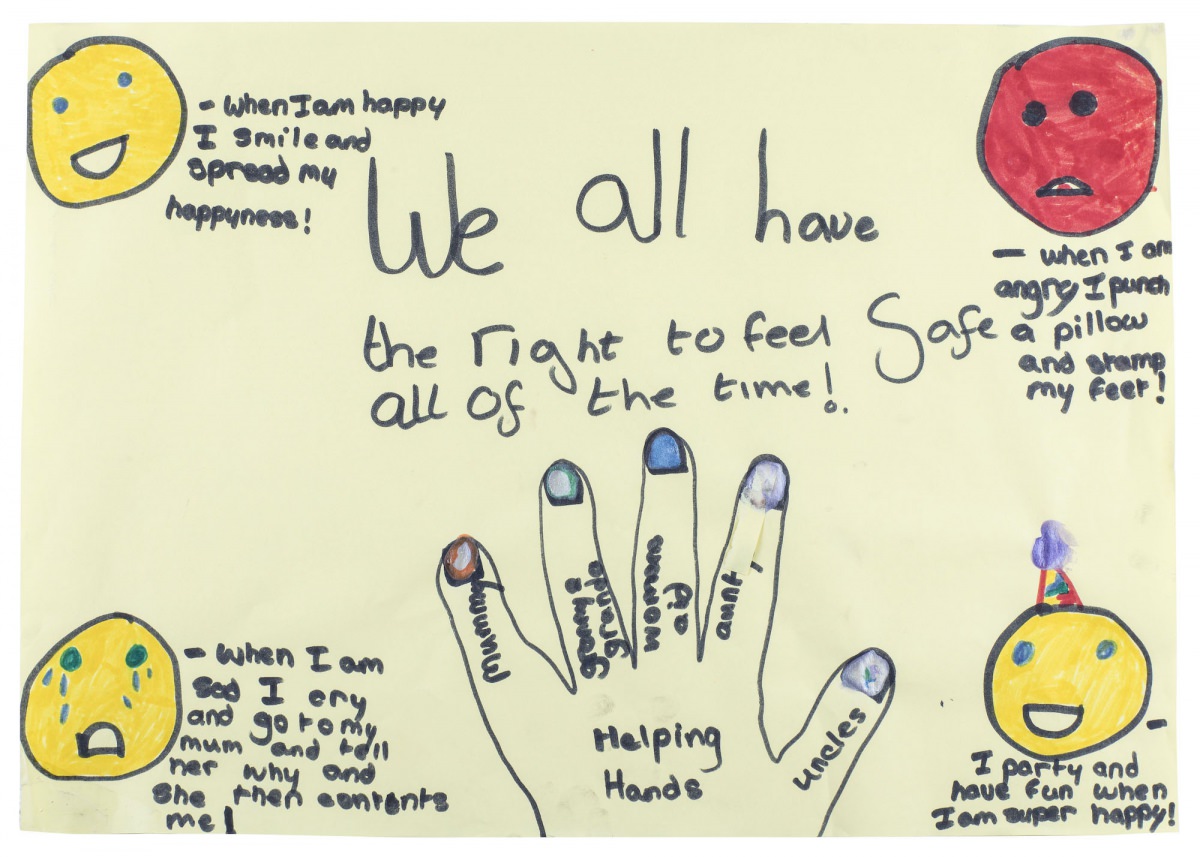 - When I am happy
I smile and
spread my
happyness!
We all have
the right to feel Safe
all of the time!
- when I am
angry I punch
a pillow
and stamp
my feet!
Mummy
grammy &
granda
womans
aid
aunt
uncles
Helping
Hands
- When I am
sad I cry
and go to my
mum and tell
her why and
she then contents
me!
-
I party and
have fun when
I am super happy!